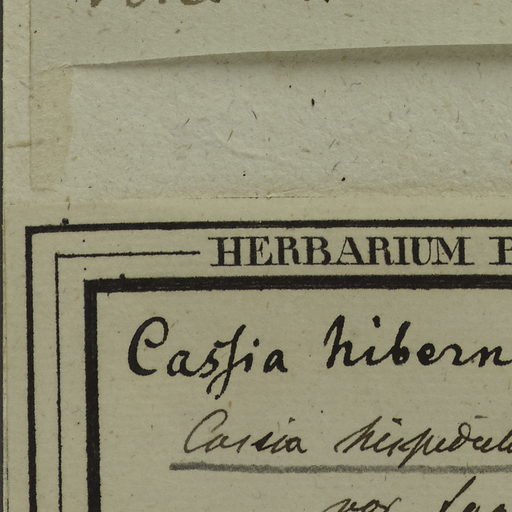 HERBARIUM
Caſsia hibern
Cassia hispidul
var